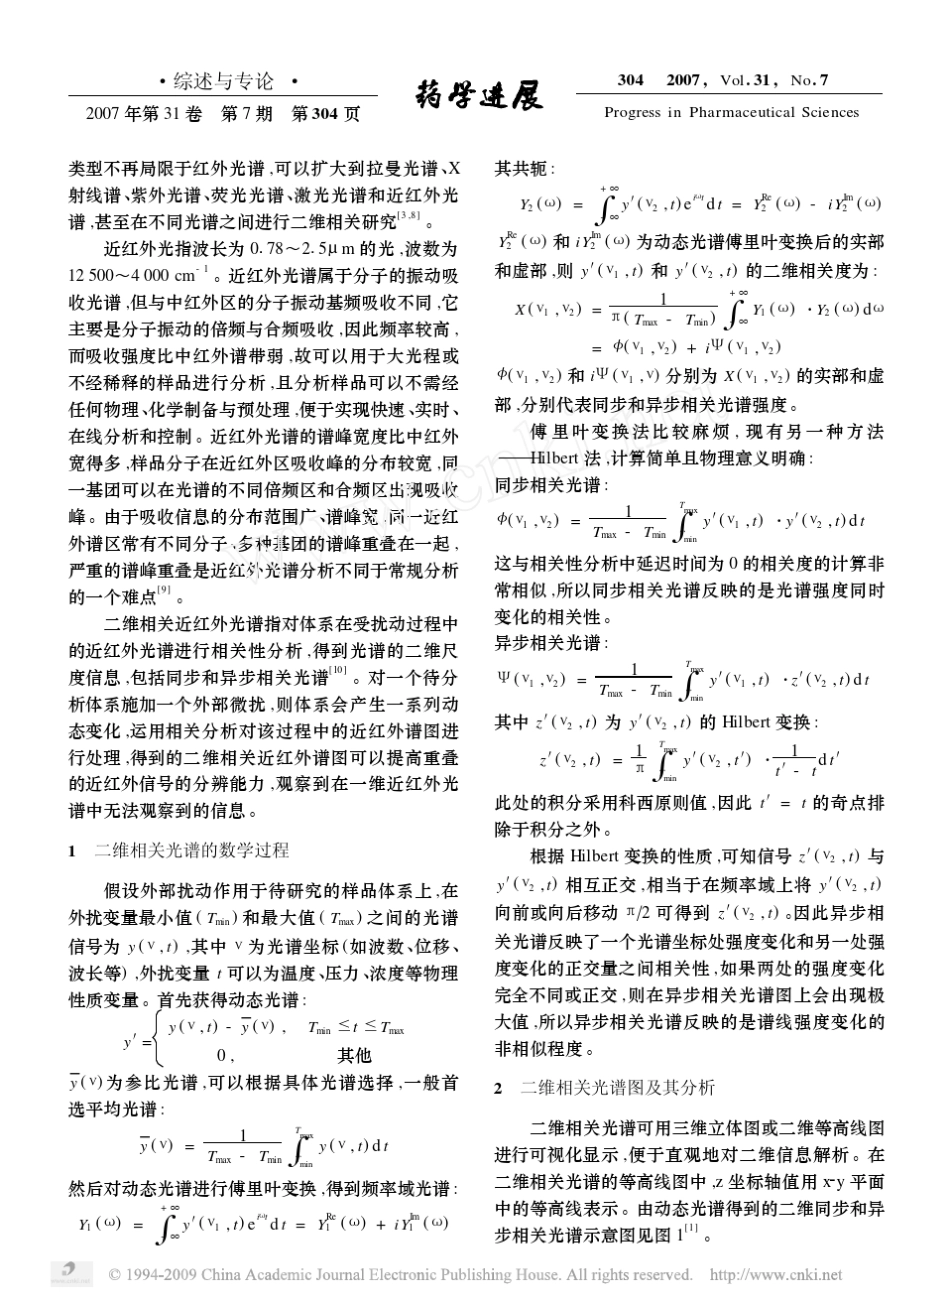 ·综述与专论·
2007年第31卷 第7期 第304页
药学进展
304 2007, Vol.31, No.7
Progress in Pharmaceutical Sciences
类型不再局限于红外光谱,可以扩大到拉曼光谱、X
射线谱、紫外光谱、荧光光谱、激光光谱和近红外光
谱,甚至在不同光谱之间进行二维相关研究[3,8]。
近红外光指波长为0.78～2.5μm的光,波数为
12 500～4 000 cm-1。近红外光谱属于分子的振动吸
收光谱,但与中红外区的分子振动基频吸收不同,它
主要是分子振动的倍频与合频吸收,因此频率较高,
而吸收强度比中红外谱带弱,故可以用于大光程或
不经稀释的样品进行分析,且分析样品可以不需经
任何物理、化学制备与预处理,便于实现快速、实时、
在线分析和控制。近红外光谱的谱峰宽度比中红外
宽得多,样品分子在近红外区吸收峰的分布较宽,同
一基团可以在光谱的不同倍频区和合频区出现吸收
峰。由于吸收信息的分布范围广、谱峰宽,同一近红
外谱区常有不同分子、多种基团的谱峰重叠在一起,
严重的谱峰重叠是近红外光谱分析不同于常规分析
的一个难点[9]。
二维相关近红外光谱指对体系在受扰动过程中
的近红外光谱进行相关性分析,得到光谱的二维尺
度信息,包括同步和异步相关光谱[10]。对一个待分
析体系施加一个外部微扰,则体系会产生一系列动
态变化,运用相关分析对该过程中的近红外谱图进
行处理,得到的二维相关近红外谱图可以提高重叠
的近红外信号的分辨能力,观察到在一维近红外光
谱中无法观察到的信息。
1 二维相关光谱的数学过程
假设外部扰动作用于待研究的样品体系上,在
外扰变量最小值(Tmin)和最大值(Tmax)之间的光谱
信号为y(ν,t),其中ν为光谱坐标(如波数、位移、
波长等),外扰变量t可以为温度、压力、浓度等物理
性质变量。首先获得动态光谱:
y′ = { y(ν,t) - y̅(ν), Tmin ≤ t ≤ Tmax
0, 其他
y̅(ν)为参比光谱,可以根据具体光谱选择,一般首
选平均光谱:
y̅(ν) = 1/(Tmax - Tmin) ∫Tmin Tmax y(ν,t)dt
然后对动态光谱进行傅里叶变换,得到频率域光谱:
Y1(ω) = ∫-∞ +∞ y′(ν1,t)e^iωt dt = Y1Re(ω) + iY1Im(ω)
其共轭:
Y2(ω) = ∫-∞ +∞ y′(ν2,t)e^iωt dt = Y2Re(ω) - iY2Im(ω)
Y2Re(ω)和iY2Im(ω)为动态光谱傅里叶变换后的实部
和虚部,则y′(ν1,t)和y′(ν2,t)的二维相关度为:
X(ν1,ν2) = 1/π(Tmax - Tmin) ∫-∞ +∞ Y1(ω)·Y2(ω)dω
= φ(ν1,ν2) + iΨ(ν1,ν2)
φ(ν1,ν2)和iΨ(ν1,ν)分别为X(ν1,ν2)的实部和虚
部,分别代表同步和异步相关光谱强度。
傅里叶变换法比较麻烦,现有另一种方法
——Hilbert法,计算简单且物理意义明确:
同步相关光谱:
φ(ν1,ν2) = 1/(Tmax - Tmin) ∫Tmin Tmax y′(ν1,t)·y′(ν2,t)dt
这与相关性分析中延迟时间为0的相关度的计算非
常相似,所以同步相关光谱反映的是光谱强度同时
变化的相关性。
异步相关光谱:
Ψ(ν1,ν2) = 1/(Tmax - Tmin) ∫Tmin Tmax y′(ν1,t)·z′(ν2,t)dt
其中z′(ν2,t)为y′(ν2,t)的Hilbert变换:
z′(ν2,t) = 1/π ∫Tmin Tmax y′(ν2,t′)·1/(t′ - t)dt′
此处的积分采用科西原则值,因此t′ = t的奇点排
除于积分之外。
根据Hilbert变换的性质,可知信号z′(ν2,t)与
y′(ν2,t)相互正交,相当于在频率域上将y′(ν2,t)
向前或向后移动π/2可得到z′(ν2,t)。因此异步相
关光谱反映了一个光谱坐标处强度变化和另一处强
度变化的正交量之间相关性,如果两处的强度变化
完全不同或正交,则在异步相关光谱图上会出现极
大值,所以异步相关光谱反映的是谱线强度变化的
非相似程度。
2 二维相关光谱图及其分析
二维相关光谱可用三维立体图或二维等高线图
进行可视化显示,便于直观地对二维信息解析。在
二维相关光谱的等高线图中,z坐标轴值用x-y平面
中的等高线表示。由动态光谱得到的二维同步和异
步相关光谱示意图见图1[1]。
© 1994-2009 China Academic Journal Electronic Publishing House. All rights reserved. http://www.cnki.net